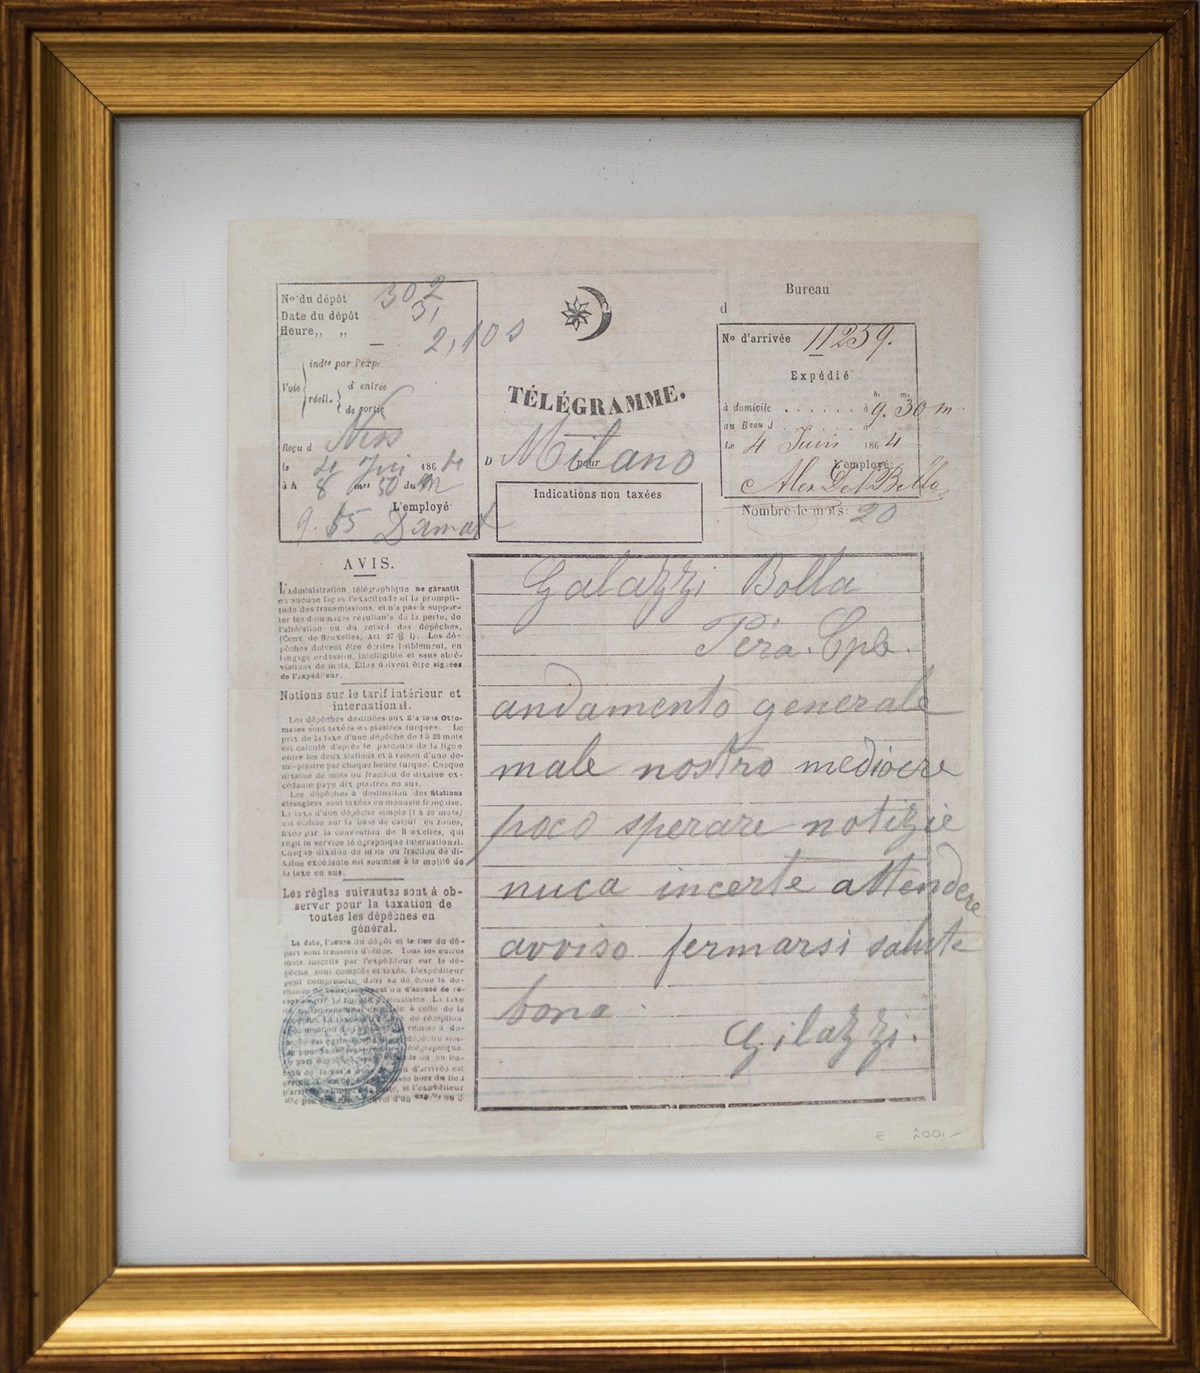 No. du dépôt 302
Date du dépôt 31
Heure „ „ 2,10 s
indre par l'expr
Voie réell. d'entrée
de sortie
Reçu d Niss
le 4 Juin 1864
à h 8 mes 50 du m
L'employé
9.55 Damat
TÉLÉGRAMME.
D Milano
pour
Indications non taxées
Bureau
d
No d'arrivée 11259.
Expédié
à domicile . . . . . . à 9. 30 m
au Beau d . . . . . . à
Le 4 Juin 1864
L'employé
Nombre de mots: 20
AVIS.
L'Administration télégraphique ne garantit
en aucune façon l'exactitude et la prompti-
tude des transmissions, et n'a pas à suppor-
ter les dommages résultants de la perte, de
l'altération ou du retard des dépêches.
(Conv. de Bruxelles, Art 27 § 1). Les dé-
pêches doivent être écrites lisiblement, en
langage ordinaire, intelligible et sans abré-
viations de mots. Elles doivent être signées
de l'expéditeur.
Notions sur le tarif intérieur et
international.
Les dépêches destinées aux Stations Otto-
manes sont taxées en piastres turques. Le
prix de la taxe d'une dépêche de 1 à 20 mots
est calculé d'après le parcours de la ligne
entre les deux stations et à raison d'une de-
mi-piastre par chaque heure turque. Chaque
dixaine de mots ou fraction de dixaine ex-
cédante paye dix piastres en sus.
Les dépêches à destination des Stations
étrangères sont taxées en monnaie française.
La taxe d'une dépêche simple (1 à 20 mots)
est établie sur la base de calcul en zones,
fixée par la convention de Bruxelles, qui
régit le service télégraphique international.
Chaque dixaine de mots ou fraction de di-
xaine excédante est soumise à la moitié de
la taxe en sus.
Les règles suivantes sont à ob-
server pour la taxation de
toutes les dépêches en
général.
La date, l'heure du dépôt et le lieu du dé-
part sont transmis d'office. Tous les autres
mots inscrits par l'expéditeur sur la dé-
pêche sont comptés et taxés. L'expéditeur
peut comprendre dans sa dépêche la de-
Galazzi Bolla
Péra. Cple.
andamento generale
male nostro mediocre
poco sperare notizie
nuca incerte attendere
avviso fermarsi salute
bona.
Gilazzi.
E 200,-